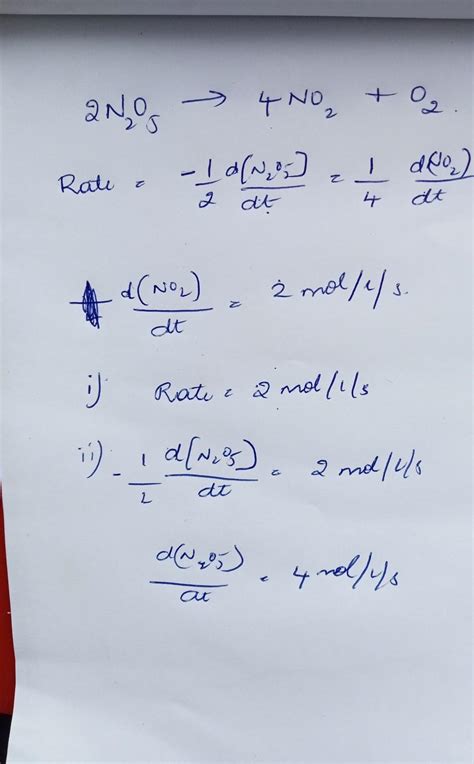 2N₂O₅ → 4NO₂ + O₂.
Rate = -1/2 d(N₂O₅)/dt = 1/4 d(NO₂)/dt
d(NO₂)/dt = 2 mol/l/s.
i) Rate = 2 mol/l/s
ii) -1/2 d(N₂O₅)/dt = 2 mol/l/s
d(N₂O₅)/dt = 4 mol/l/s